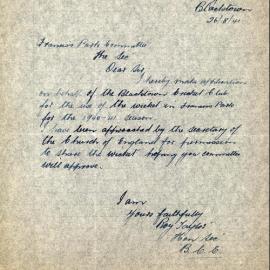 Blacktown
26/8/41
Francis Park Committee
The Sec
Dear Sir
I hereby make application
on behalf of the Blacktown Cricket Club
for the use of the wicket in Francis Park
for the 1940-41 season
I have been approached by the secretary of
the Church of England for permission
to share the wicket hoping your committee
will approve.
I am
Yours faithfully
Roy
Hon Sec
B.C.C.